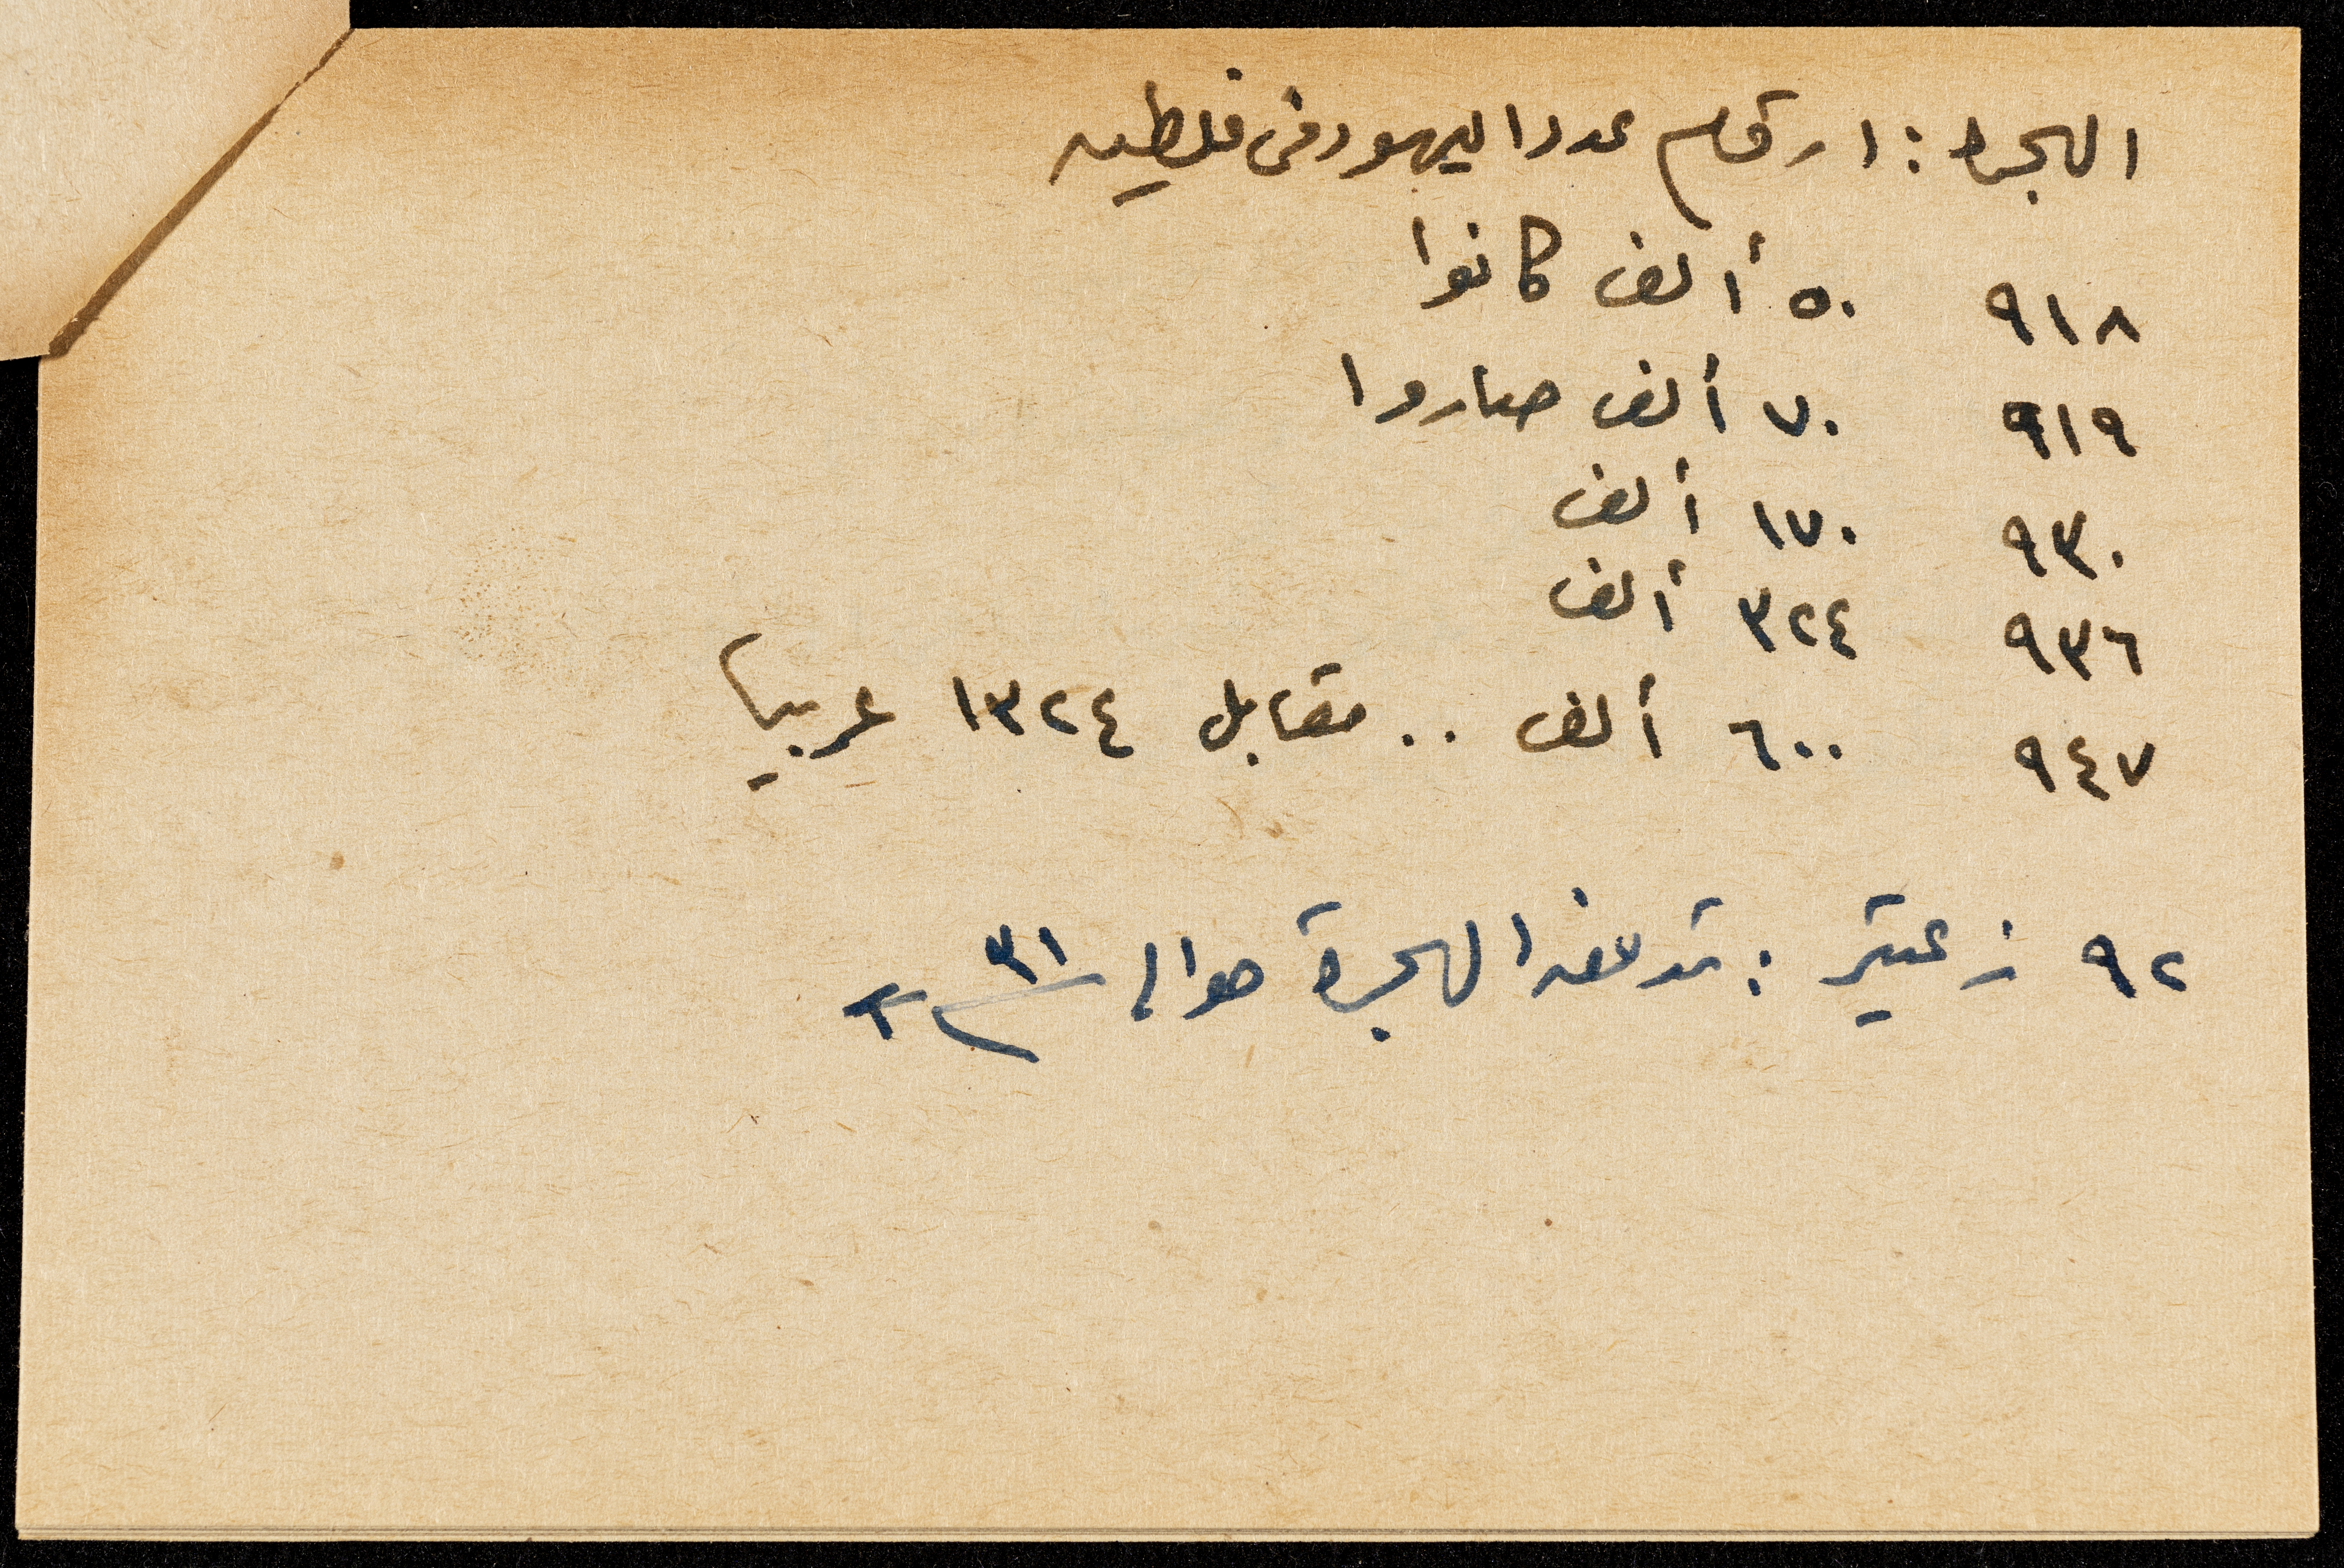 الهجرة : ارقام عدد اليهود فى فلسطين
٩١٨ ٥٠ ألف كانوا
٩١٩ ٧٠ ألف صاروا
٩٣٠ ١٧٠ ألف
٩٣٦ ٣٢٤ ألف
٩٤٧ ٦٠٠ ألف .. مقابل ١٣٢٤ عربيا
٩٢ زعيتر : تدفق الهجرة حوالى ٣١